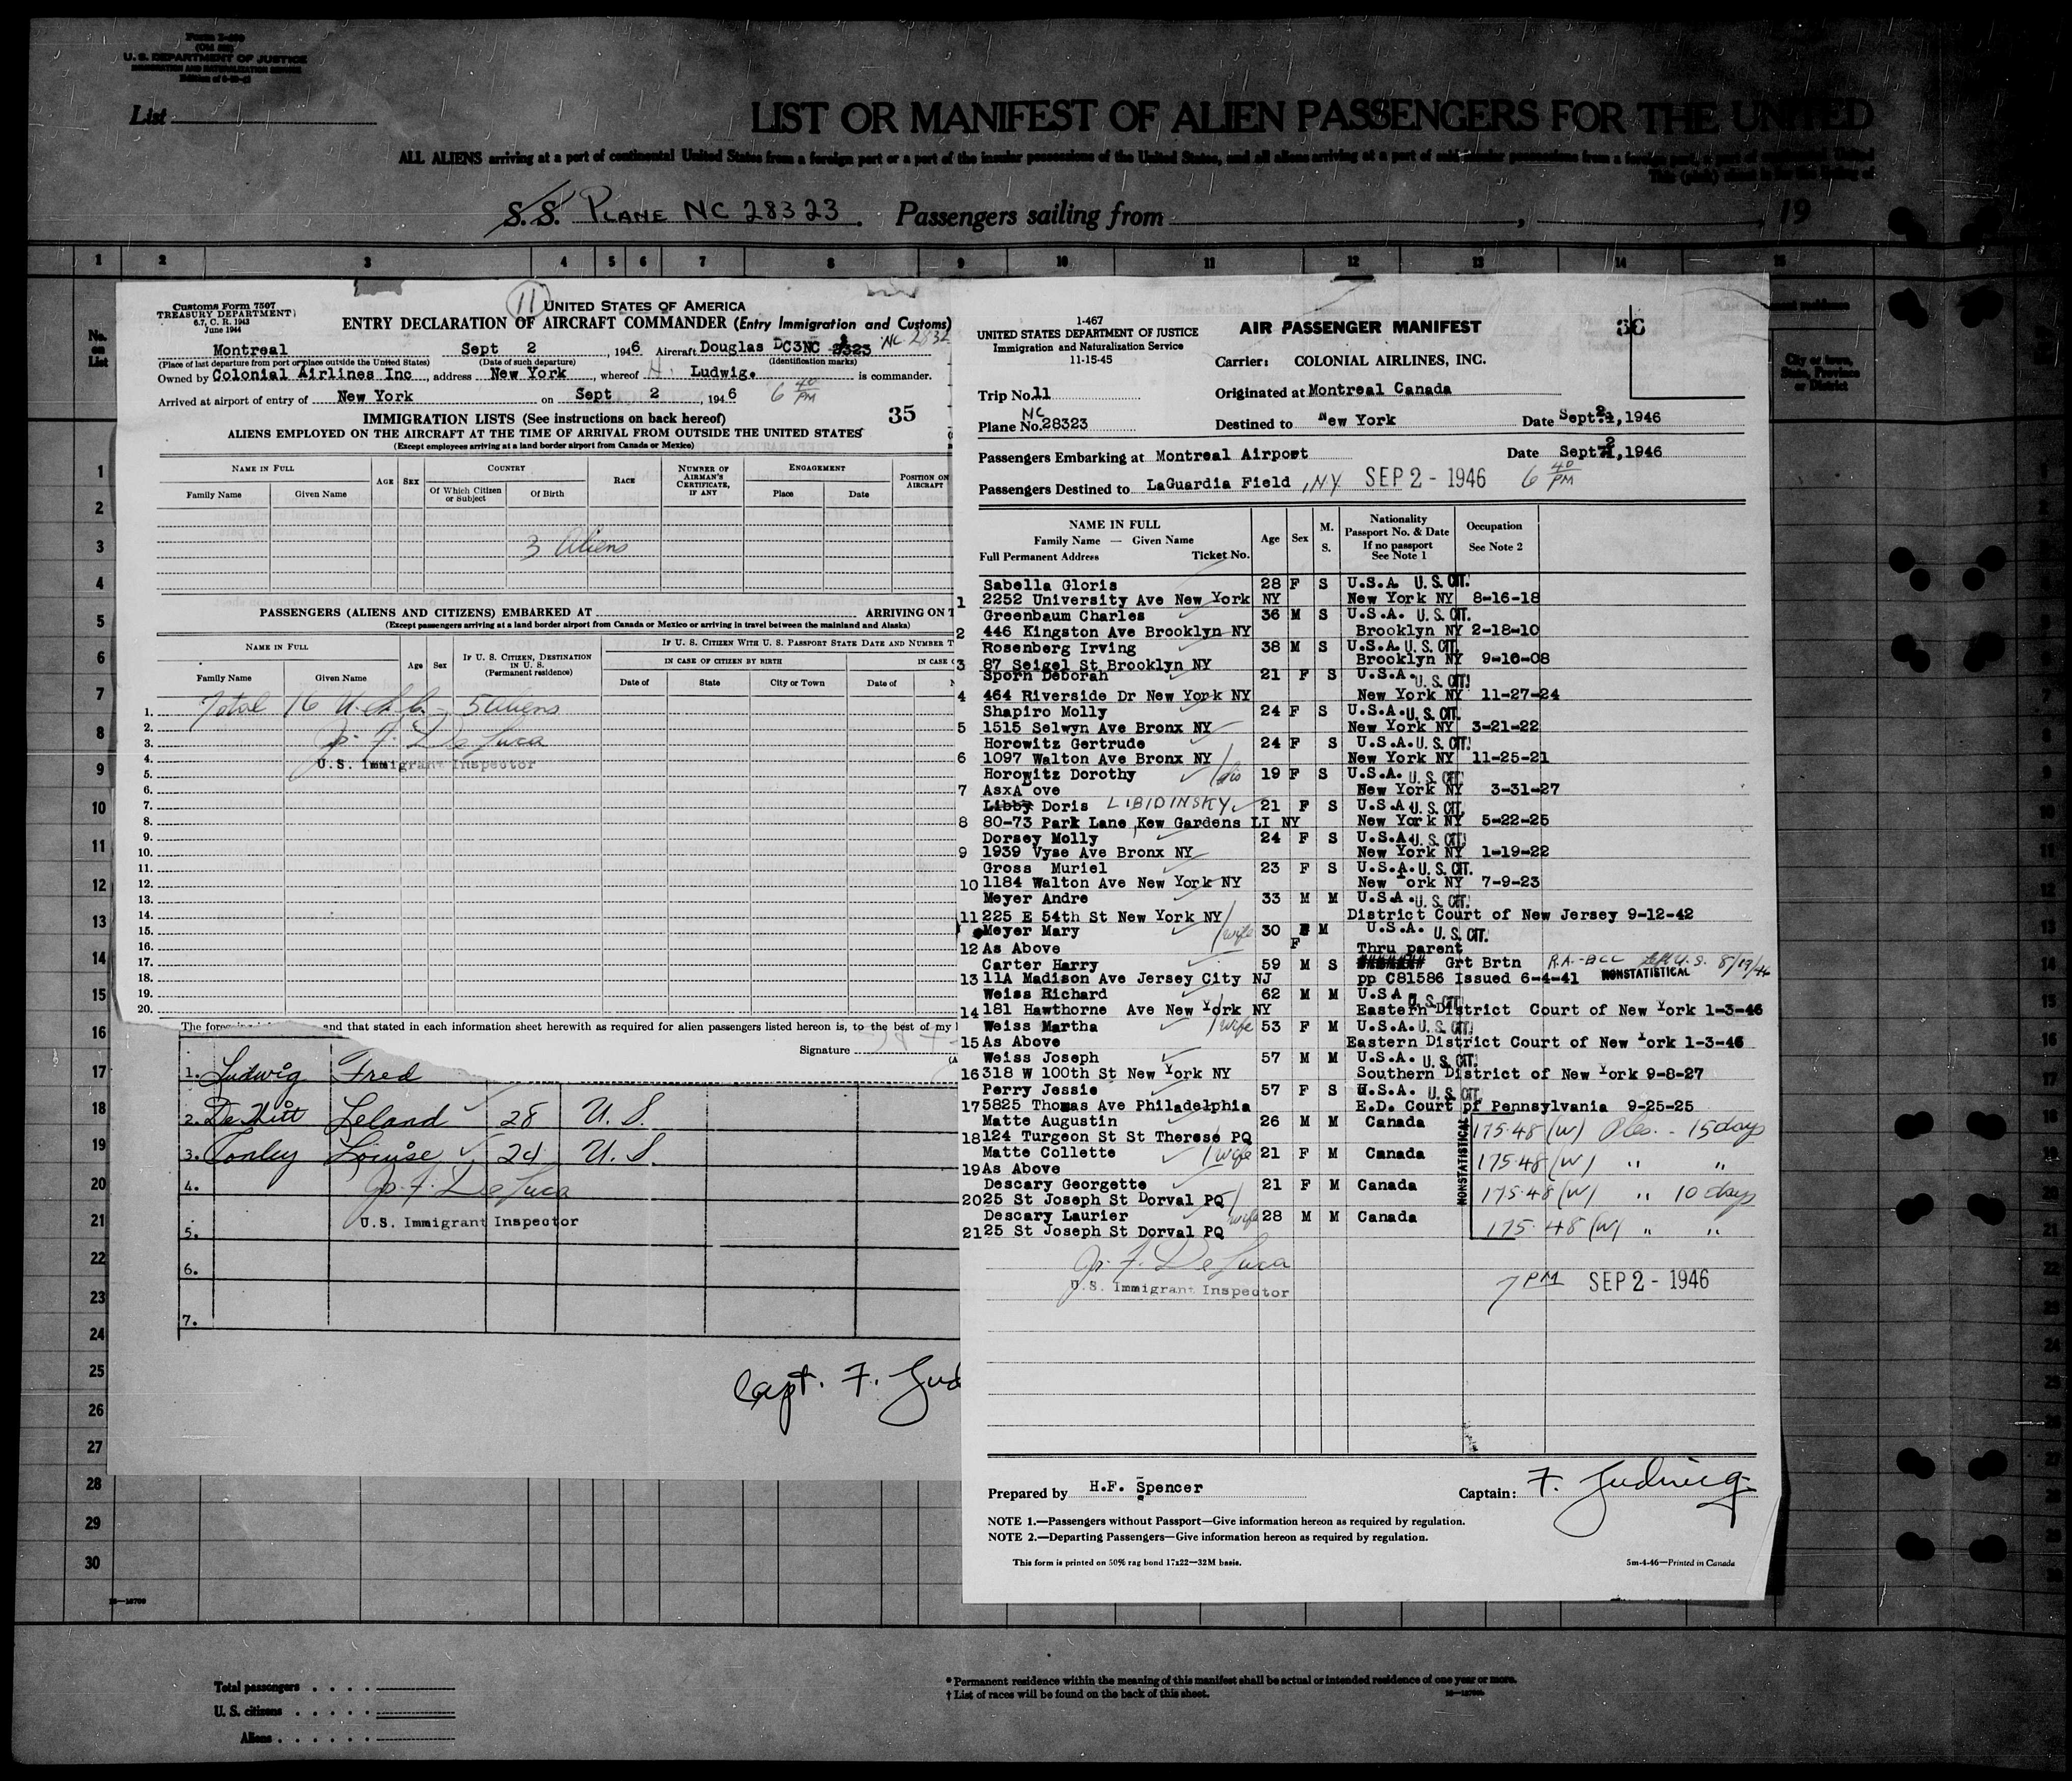 U. S. DEPARTMENT OF JUSTICE
List
LIST OR MANIFEST OF ALIEN PASSENGERS FOR THE UNITED
ALL ALIENS arriving at a port of continental United States from a foreign port or a port of the insular possessions of the United States, and all aliens arriving at a port of said insular possessions from a foreign port, a port of continental United
S.S. PLANE NC 28323. Passengers sailing from , 19
1 2 3 4 5 6 7 8 9 10 11 12 13 14 15
No. on List
Customs Form 7507
TREASURY DEPARTMENT
6.7, C. R. 1943
June 1944
11 UNITED STATES OF AMERICA
ENTRY DECLARATION OF AIRCRAFT COMMANDER (Entry Immigration and Customs)
Montreal Sept 2, 1946 Aircraft Douglas DC3NC
(Place of last departure from port or place outside the United States) (Date of such departure) (Identification marks)
Owned by Colonial Airlines Inc, address New York, whereof Ludwig. is commander.
Arrived at airport of entry of New York on Sept 2, 1946 6 40 PM
IMMIGRATION LISTS (See instructions on back hereof) 35
ALIENS EMPLOYED ON THE AIRCRAFT AT THE TIME OF ARRIVAL FROM OUTSIDE THE UNITED STATES
(Except employees arriving at a land border airport from Canada or Mexico)
NAME IN FULL AGE SEX COUNTRY RACE NUMBER OF AIRMAN'S CERTIFICATE, IF ANY ENGAGEMENT POSITION ON AIRCRAFT
Family Name Given Name Of Which Citizen or Subject Of Birth Place Date
3 Aliens
PASSENGERS (ALIENS AND CITIZENS) EMBARKED AT ARRIVING ON
(Except passengers arriving at a land border airport from Canada or Mexico or arriving in travel between the mainland and Alaska)
NAME IN FULL Age Sex IF U. S. CITIZEN, DESTINATION IN U. S. (Permanent residence) IF U. S. CITIZEN WITH U. S. PASSPORT STATE DATE AND NUMBER
IN CASE OF CITIZEN BY BIRTH IN CASE
Family Name Given Name Date of State City or Town Date of
Total 16 U.S.C. - 5 Aliens
Jo. F. De Luca
U.S. Immigrant Inspector
1.
2.
3.
4.
5.
6.
7.
8.
9.
10.
11.
12.
13.
14.
15.
16.
17.
18.
19.
20.
and that stated in each information sheet herewith as required for alien passengers listed hereon is, to the best of my
Signature
1. Ludwig Fred
2. DeWitt Leland 28 U. S.
3. Conley Louise 24 U. S.
4. Jo. F. De Luca
U.S. Immigrant Inspector
5.
6.
7.
Capt. F. Lud
1-467
UNITED STATES DEPARTMENT OF JUSTICE
Immigration and Naturalization Service
11-15-45
AIR PASSENGER MANIFEST 36
Carrier: COLONIAL AIRLINES, INC.
Trip No. 11 Originated at Montreal Canada
Plane No. NC 28323 Destined to New York Date Sept. 2, 1946
Passengers Embarking at Montreal Airport Date Sept 2, 1946
Passengers Destined to LaGuardia Field, NY SEP 2 - 1946 6 40 PM
NAME IN FULL Age Sex M. S. Nationality Passport No. & Date If no passport See Note 1 Occupation See Note 2
Family Name — Given Name
Full Permanent Address Ticket No.
Sabella Gloris 28 F S U.S.A. U. S. CIT.
1 2252 University Ave New York NY New York NY 8-16-18
Greenbaum Charles 36 M S U.S.A. U. S. CIT.
2 446 Kingston Ave Brooklyn NY Brooklyn NY 2-18-10
Rosenberg Irving 38 M S U.S.A. U. S. CIT.
3 87 Seigel St Brooklyn NY Brooklyn NY 9-16-08
Sporn Deborah 21 F S U.S.A. U. S. CIT.
4 464 Riverside Dr New York NY New York NY 11-27-24
Shapiro Molly 24 F S U.S.A. U. S. CIT.
5 1515 Selwyn Ave Bronx NY New York NY 3-21-22
Horowitz Gertrude 24 F S U.S.A. U. S. CIT.
6 1097 Walton Ave Bronx NY New York NY 11-25-21
Horowitz Dorothy /sis 19 F S U.S.A. U. S. CIT.
7 AsxAbove New York NY 3-31-27
Libby Doris LIBIDINSKY 21 F S U.S.A. U. S. CIT.
8 80-73 Park Lane, Kew Gardens LI NY New York NY 5-22-25
Dorsey Molly 24 F S U.S.A. U. S. CIT.
9 1939 Vyse Ave Bronx NY New York NY 1-19-22
Gross Muriel 23 F S U.S.A. U. S. CIT.
10 1184 Walton Ave New York NY New York NY 7-9-23
Meyer Andre 33 M M U.S.A. U. S. CIT.
11 225 E 54th St New York NY District Court of New Jersey 9-12-42
Meyer Mary /wife 30 F M U.S.A. U. S. CIT.
12 As Above Thru parent
Carter Harry 59 M S Grt Brtn R.A.-BCC U.S. 8/17/46
13 11A Madison Ave Jersey City NJ pp C81586 Issued 6-4-41 NONSTATISTICAL
Weiss Richard 62 M M U.S.A U. S. CIT.
14 181 Hawthorne Ave New York NY Eastern District Court of New York 1-3-46
Weiss Martha /wife 53 F M U.S.A. U. S. CIT.
15 As Above Eastern District Court of New York 1-3-46
Weiss Joseph 57 M M U.S.A. U. S. CIT.
16 318 W 100th St New York NY Southern District of New York 9-8-27
Perry Jessie 57 F S U.S.A. U. S. CIT.
17 5825 Thomas Ave Philadelphia E.D. Court of Pennsylvania 9-25-25
Matte Augustin 26 M M Canada 175.48 (W) Ples. - 15 days
18 124 Turgeon St St Therese PQ NONSTATISTICAL
Matte Collette /wife 21 F M Canada 175.48 (W) " "
19 As Above
Descary Georgette 21 F M Canada 175.48 (W) " 10 days
20 25 St Joseph St Dorval PQ
Descary Laurier wife 28 M M Canada 175.48 (W) " "
21 25 St Joseph St Dorval PQ
Jo. F. De Luca
U.S. Immigrant Inspector 7 PM SEP 2 - 1946
Prepared by H.F. Spencer Captain: F. Ludwig
NOTE 1.—Passengers without Passport—Give information hereon as required by regulation.
NOTE 2.—Departing Passengers—Give information hereon as required by regulation.
This form is printed on 50% rag bond 17x22—32M basis. 5m-4-46—Printed in Canada
1
2
3
4
5
6
7
8
9
10
11
12
13
14
15
16
17
18
19
20
21
22
23
24
25
26
27
28
29
30
Total passengers
U. S. citizens
Aliens
* Permanent residence within the meaning of this manifest shall be actual or intended residence of one year or more.
† List of races will be found on the back of this sheet.